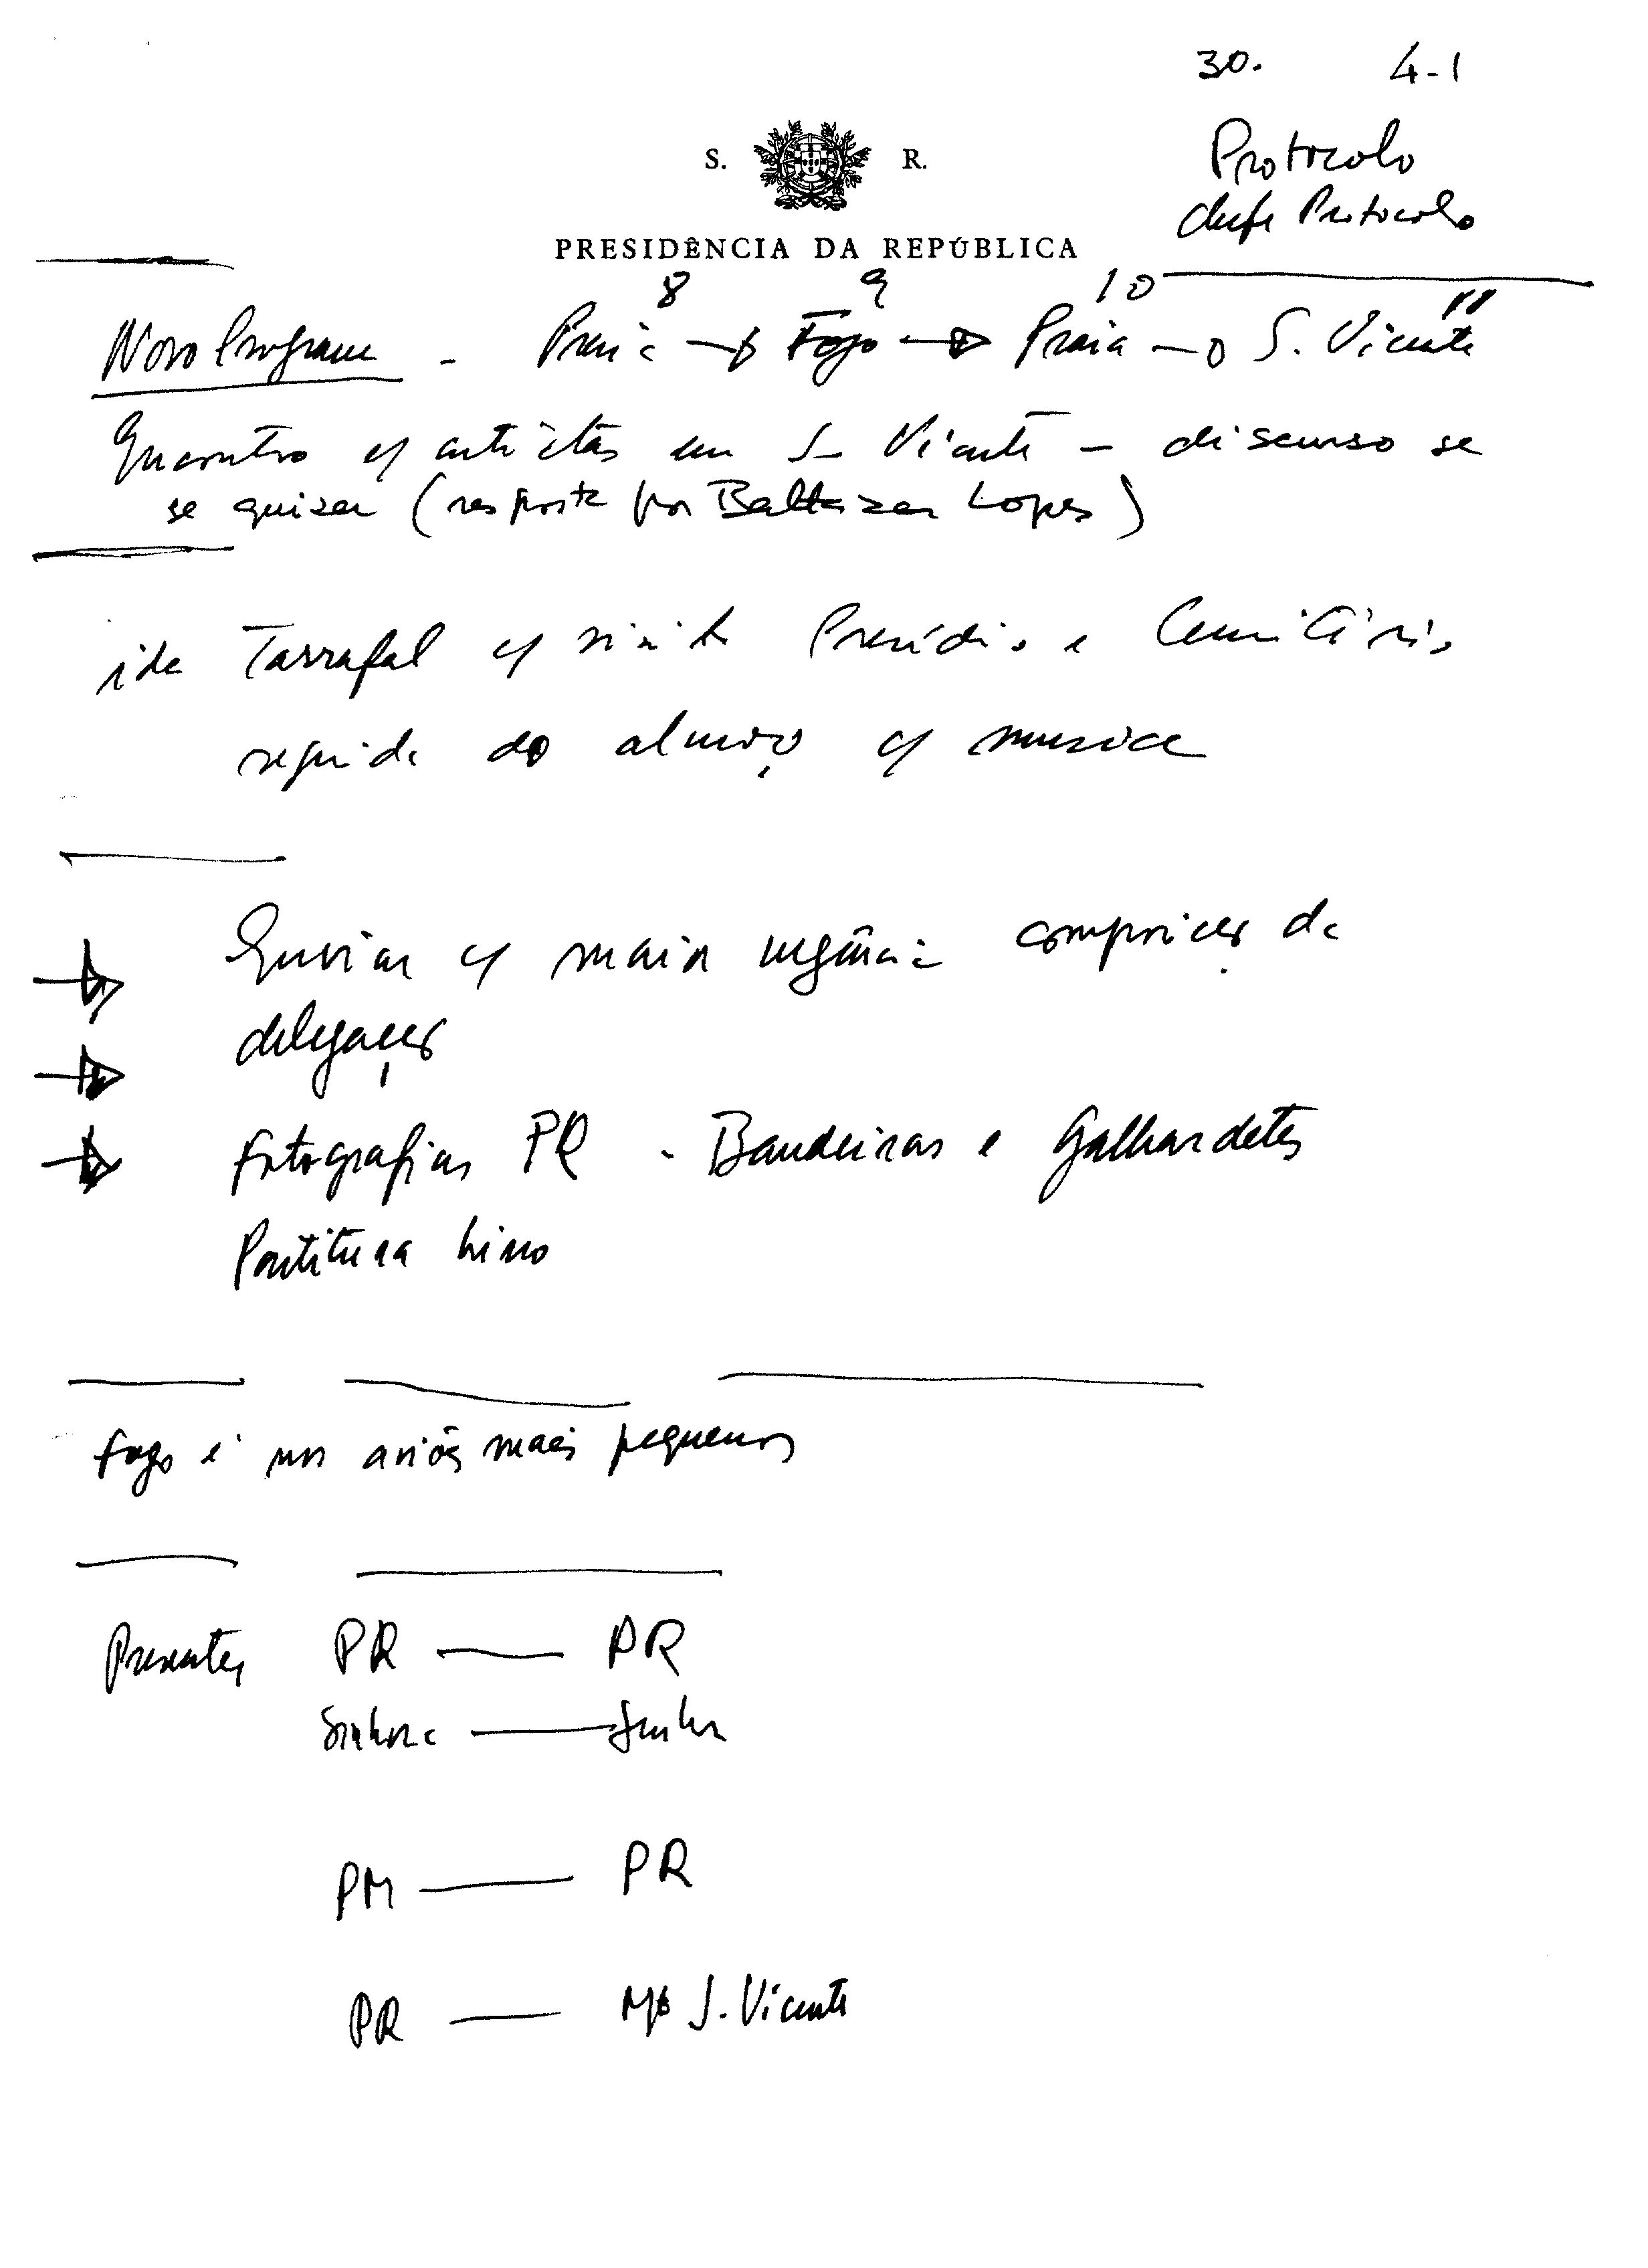 30. 4-1
Protocolo
S. R.
chefe Protocolo
PRESIDÊNCIA DA REPÚBLICA
8 9 10 11
Novo Programa - Praia → Fogo → Praia → S. Vicente
Encontro c/ artistas em S. Vicente - discurso se
se quiser (resposta por Baltazar Lopes)
ida Tarrafal c/ visita Presídio e Cemitério,
seguida do almoço c/ musica
→ Enviar c/ maior urgência composições da
→ delegações
→ fotografias PR - Bandeiras e Galhardetes
Partitura hino
Fogo é nos aviões mais pequenos
Presentes PR — PR
Senhora — Senhora
PM — PR
PR — S. Vicente